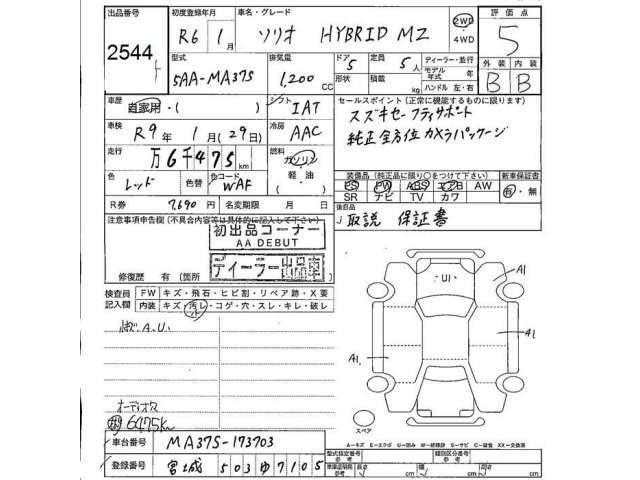 出品番号
2544
初度登録年月
R6年 1月
車名・グレード
ソリオ HYBRID MZ
2WD・4WD
評価点
5
型式
5AA-MA37S
排気量
1,200 CC
ドア
5
形状
定員
5人
積載
kg
ディーラー・並行
モデル年式 年
ハンドル 左・右
外装 内装
B B
車歴
自家用・( )
シフト
IAT
車検
R9年 1月(29日)
冷房
AAC
走行
万6千475km
燃料
ガソリン
軽油
( )
色
レッド
色替
色コード
WAF
R券
7,690
名変期限 月 日
セールスポイント(正常に機能するものに限ります)
スズキセーフティサポート
純正全方位カメラパッケージ
装備品(純正品に限り○をつけて下さい)
新車保証書
PS PW ABS エアB AW
有・無
SR ナビ TV カワ
後日品
取説 保証書
注意事項申告欄(不具合内容等は具体的に記入して下さい)
初出品コーナー
AA DEBUT
ディーラー出品車
修復歴 有(箇所
検査員記入欄
FW キズ・飛石・ヒビ割・リペア跡・X要
内装 キズ・汚レ・コゲ・穴・スレ・キレ・破レ
A.U.
U1
A1
A1
A1
スペア
オーディオレス
6475km
A-キズ E-エクボ U-凹み W-補修跡 S-サビ C-腐食 XX-交換済
車台番号
MA37S-173703
登録番号
宮城 503 ゆ 7105
型式指定番号
参考
類別区分番号
参考
車庫証明用
参考
長さ cm
幅 cm
高さ cm